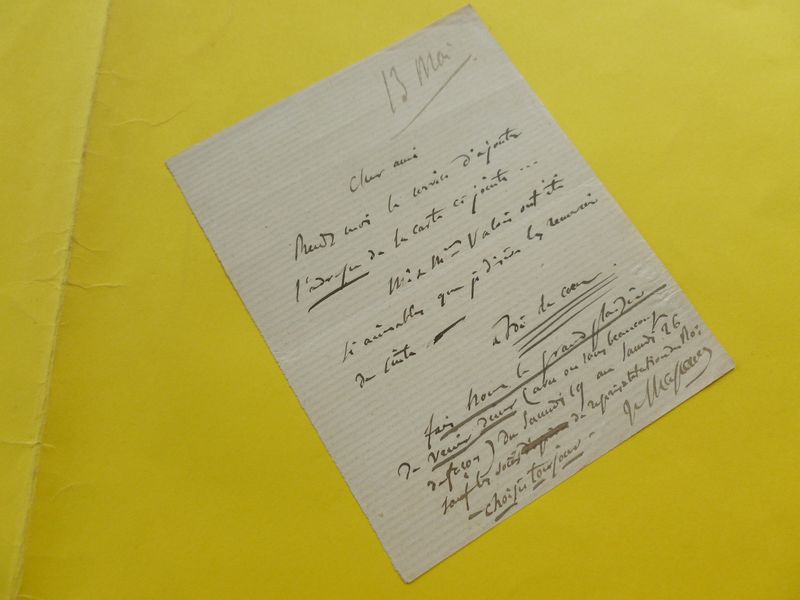 13 Mai
Cher ami
Rends moi le service d'ajouter
l'adresse de la carte ci jointe ...
Mr & Mme Valois ont été
si aimables que je désire les remercier
de suite —
à toi de coeur.
fais nous le grand plaisir
de venir dîner (avec ou sans beaucoup
de façon) du Samedi 19 au Samedi 26
sauf les soirées de représentation du Roi
— choisis toujours —
J. Massenet